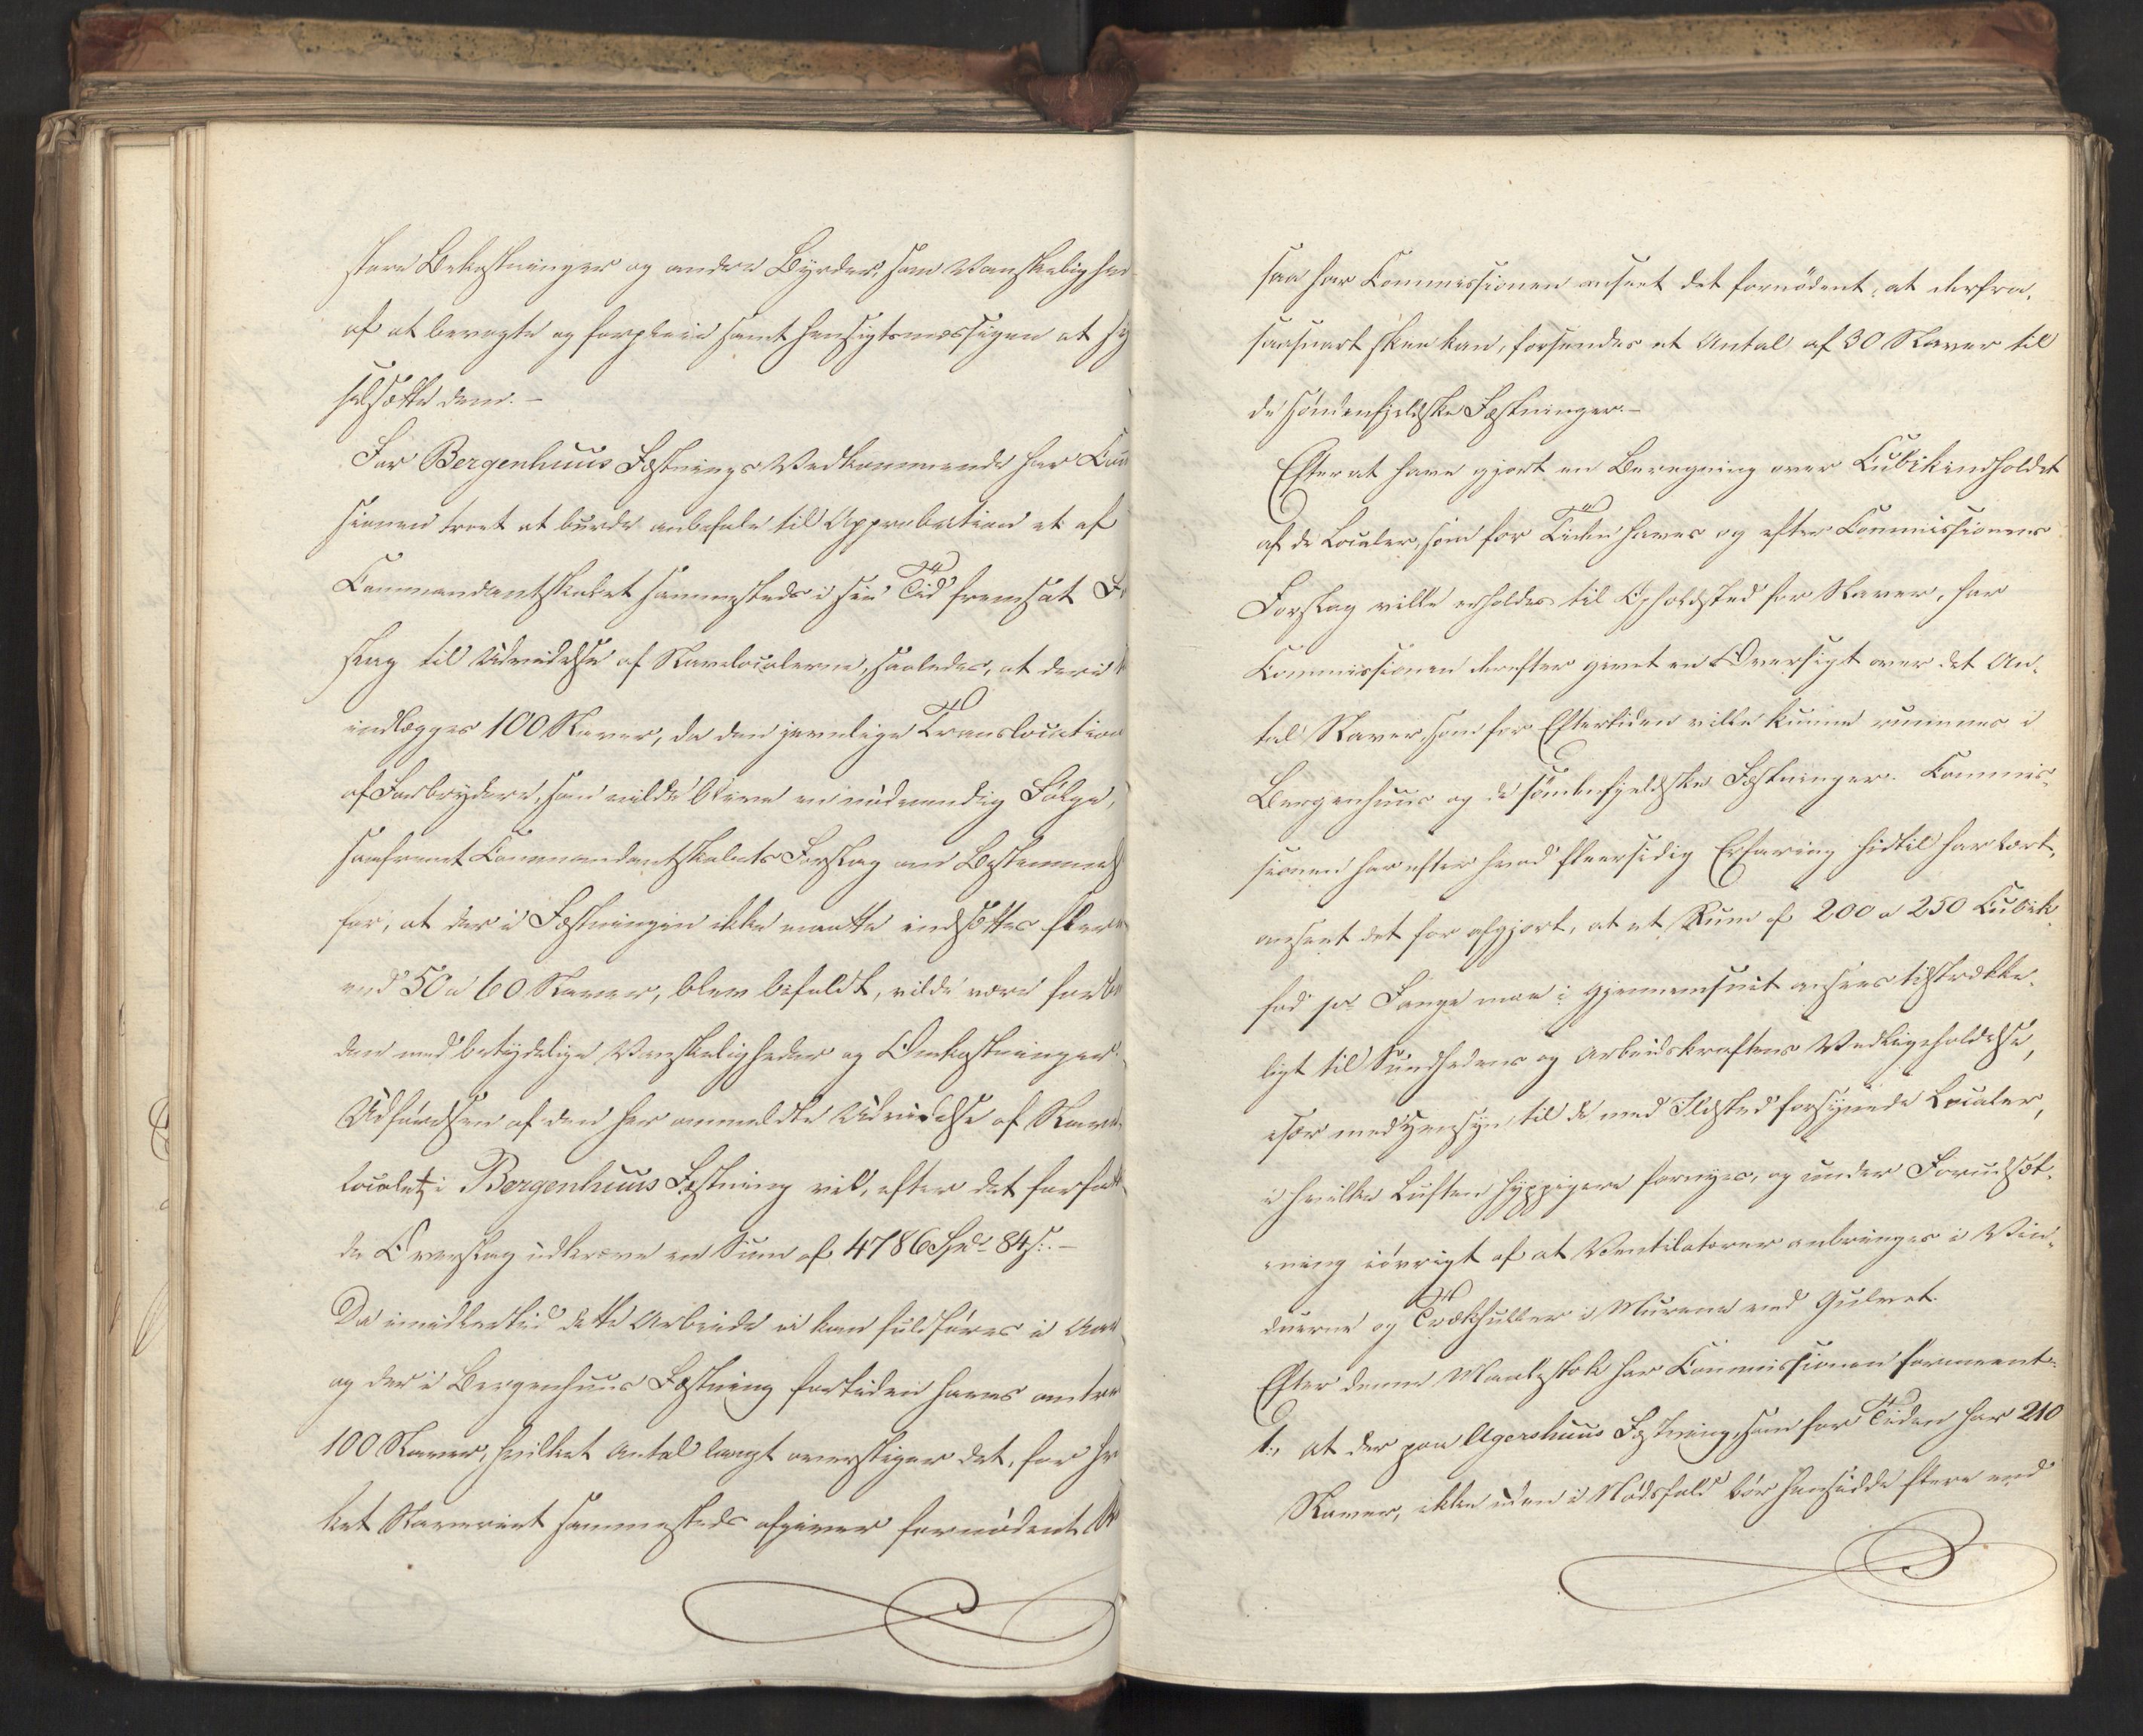 større Bekostninger og andre Byrder, som Vanskelighed
af at bevogte og forpleie samt hensigtsmæssigen at sys
selsætte dem. –
For Bergenhuus Fæstnings Vedkommende har Com
sionen troet at burde anbefale til Approbation et af
Commandantskabet sammesteds i sin Tid fremsat Fo
slag til Udvidelse af Slavelocalerne, saaledes, at deri k
indlægges 100 Slaver, da den jevnlige Translocation
af Forbrydere, som vilde blive en nødvendig Følge,
saafremt Commandantskabets Forslag om Bestemmels
for, at der i Fæstningen ikke maatte indsættes flere
end 50 a 60 Slaver, blev bifaldt, vilde være forbu
den med betydelige Vanskeligheder og Omkostninger.
Udførelsen af den her ommeldte Udvidelse af Slave-
localet i Bergenhuus Fæstning vil, efter det forfatt
de Overslag udkræve en Sum af 4786 Spd. 84 s. –
Da imidlertid dette Arbeide ei kan fuldføres i Aar
og der i Bergenhuus Fæstning fortiden haves omtre
100 Slaver, hvilket Antal langt overstiger det, for hv
ket Slaveriet sammesteds afgiver fornødent R
saa har Commissionen anseet det fornødent, at derfra,
saasnart skee kan, forsendes et Antal af 30 Slaver til
de søndenfjeldske Fæstninger. –
Efter at have gjort en Beregning over Cubikindholdet
af de Localer, som for Tiden haves og efter Commissionens
Forslag ville erholdes til Opholdsted for Slaver, har
Commissionen derefter givet en Oversigt over det An-
tal Slaver, som for Eftertiden ville kunne rummes i
Bergenhuus og de søndenfjeldske Fæstninger. Commis-
sionen har efter hvad fleersidig Erfaring hidtil har lært,
anseet det for afgjort, at et Rum af 200 a 250 Cubik-
fod pr Fange maa i Gjennemsnit ansees tilstrække-
ligt til Sundhedens og Arbeidskraftens Vedligeholdelse,
især med Hensyn til de med Ildsted forsynede Localer,
i hvilke Luften hyppigere fornyes, og under Forudsæt-
ning iøvrigt af at Ventilatorer anbringes i Vin-
duerne og Trækhuller i Murene ved Gulvet.
Efter denne Maalestok har Commissionen formeent:
1., at der paa Agershuus Fæstning, som for Tiden har 210
Slaver, ikke uden i Nødsfald bør hensidde flere end